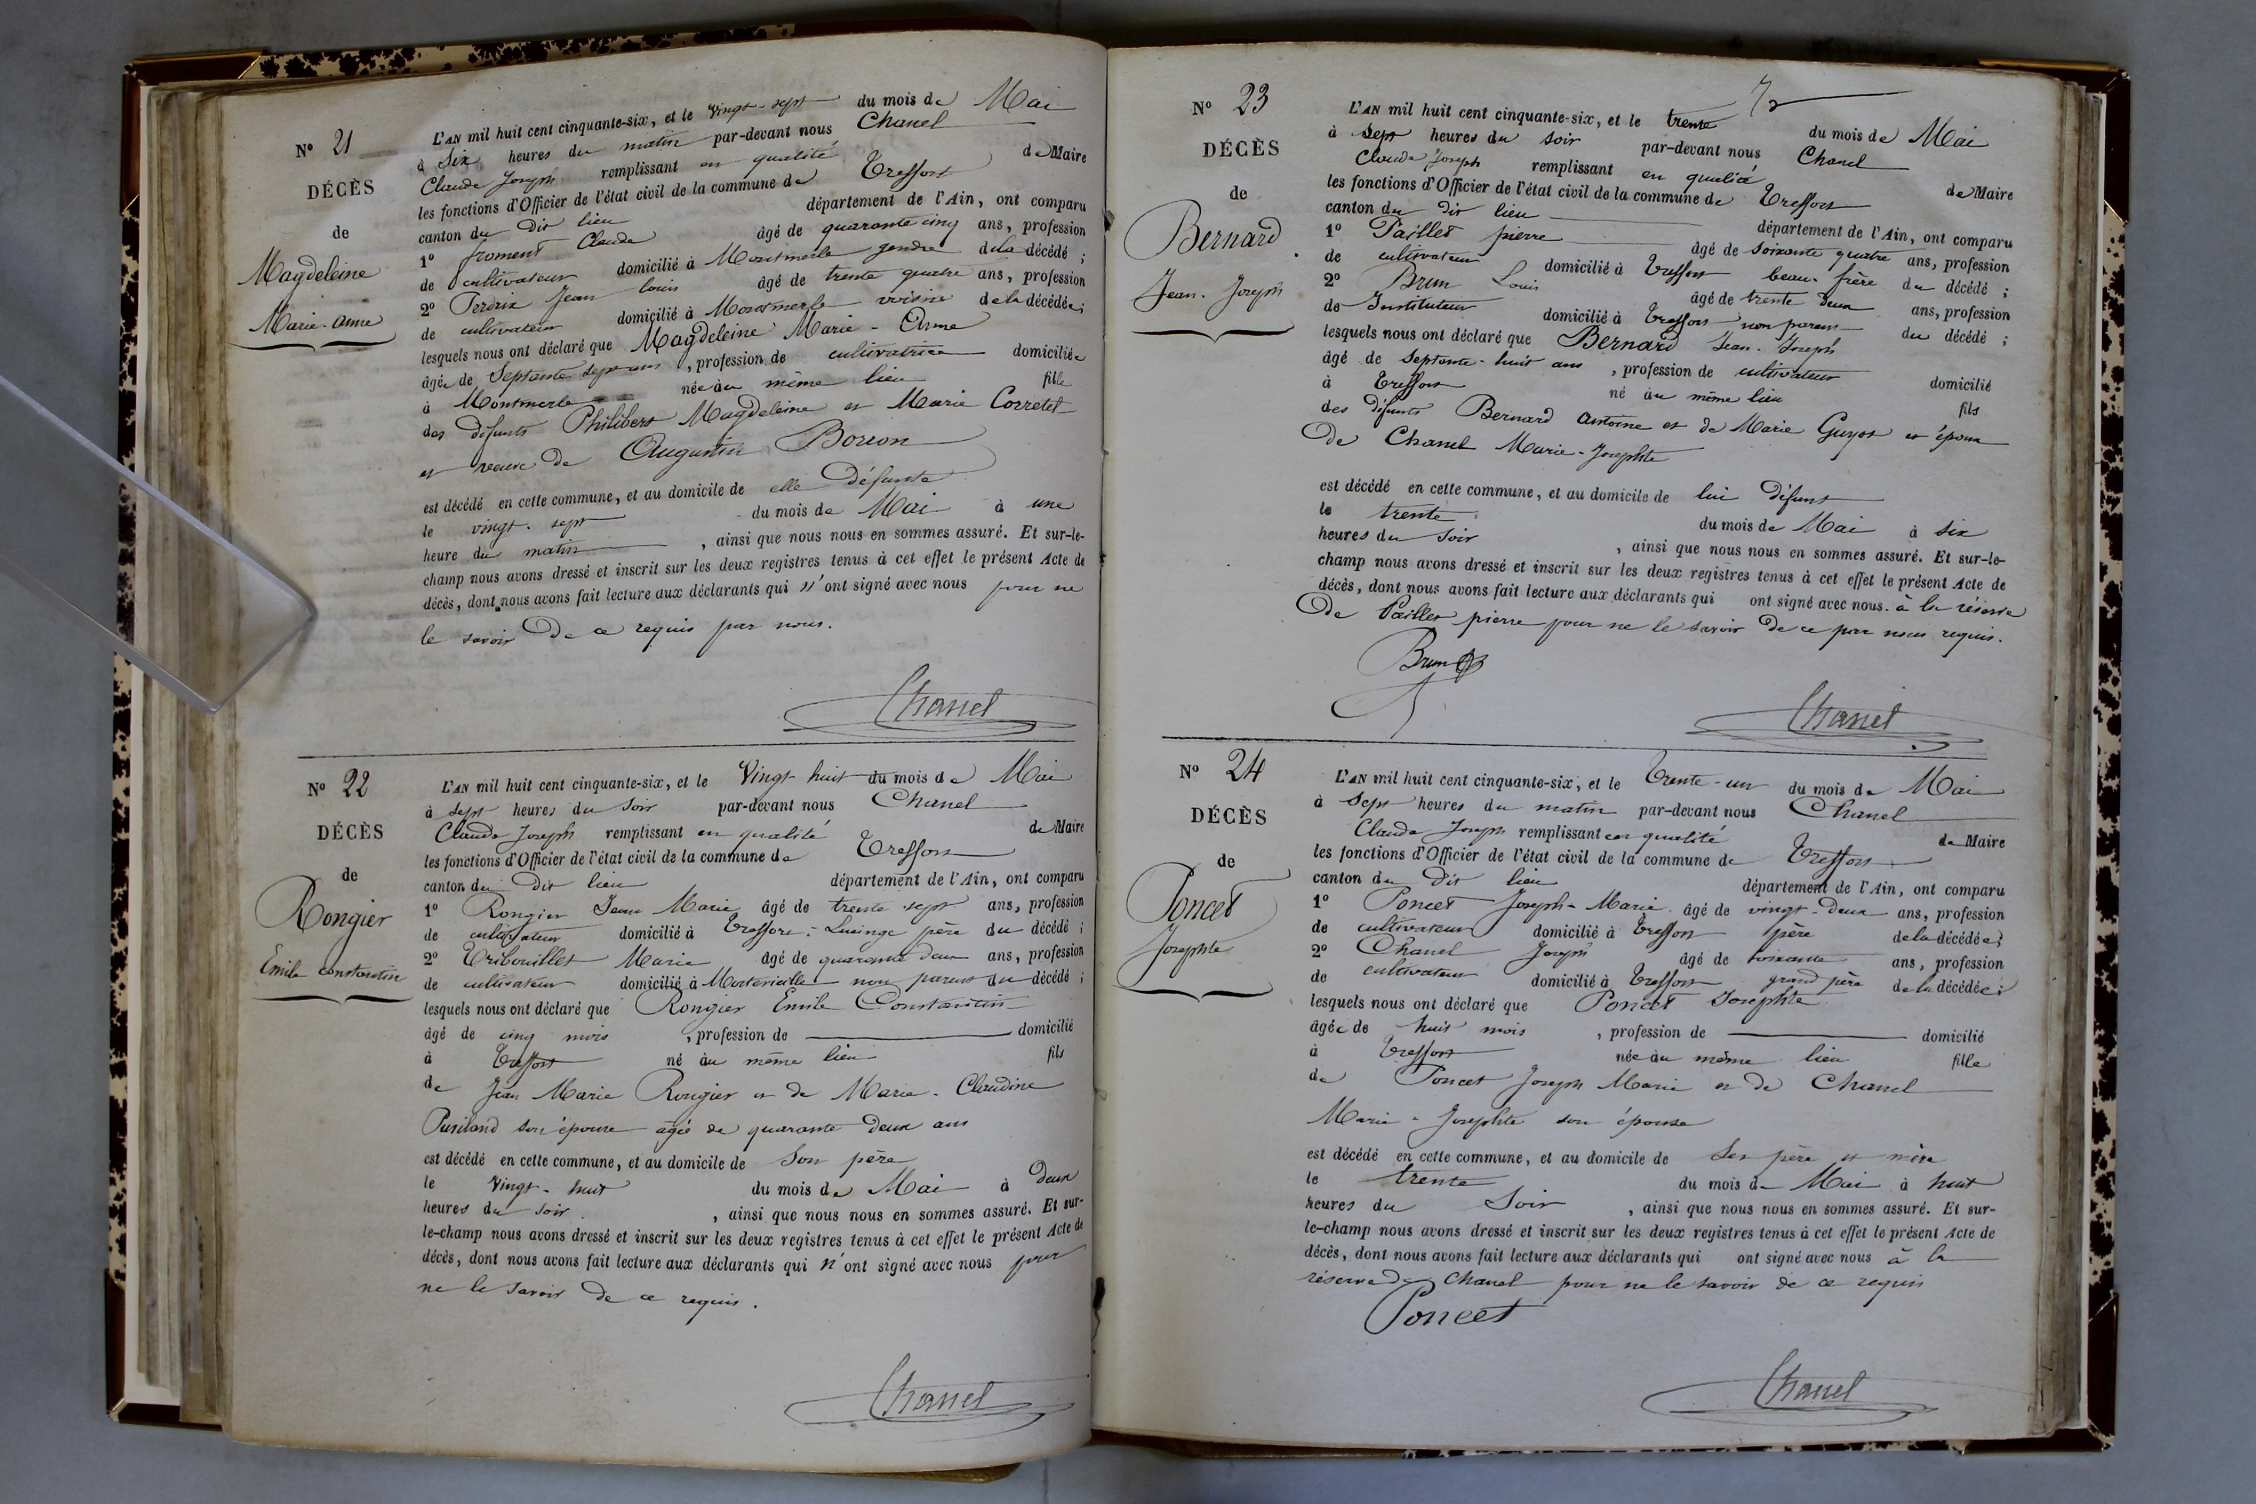 N° 21
DÉCÈS
de
Magdeleine
Marie-anne
L'AN mil huit cent cinquante-six, et le vingt-sept du mois de Mai
à six heures du matin par-devant nous Chanel
Claude Joseph remplissant en qualité de Maire
les fonctions d'Officier de l'état civil de la commune de Treffort
canton du dit lieu département de l'Ain, ont comparu
1° froment Claude âgé de quarante cinq ans, profession
de cultivateur domicilié à Montmerle gendre de la décédé ;
2° Perdrix Jean louis âgé de trente quatre ans, profession
de cultivateur domicilié à Montmerle voisin de la décédée ;
lesquels nous ont déclaré que Magdeleine Marie-Anne
âgée de Septante sept ans , profession de cultivatrice domiciliée
à Montmerle née au même lieu fille
des défunts Philibert Magdeleine et Marie Corretet
et veuve de Augustin Borion
est décédé en cette commune, et au domicile de elle défunte
le vingt-sept du mois de Mai à une
heure du matin , ainsi que nous nous en sommes assuré. Et sur-le-
champ nous avons dressé et inscrit sur les deux registres tenus à cet effet le présent Acte de
décès, dont nous avons fait lecture aux déclarants qui n'ont signé avec nous pour ne
le savoir de ce requis par nous.
Chanel
N° 22
DÉCÈS
de
Rongier
Emile constantin
L'AN mil huit cent cinquante-six, et le Vingt-huit du mois de Mai
à sept heures du soir par-devant nous Chanel
Claude Joseph remplissant en qualité de Maire
les fonctions d'Officier de l'état civil de la commune de Treffort
canton du dit lieu département de l'Ain, ont comparu
1° Rongier Jean Marie âgé de trente sept ans, profession
de cultivateur domicilié à Treffort-Lucinge père du décédé ;
2° Tribouillet Marie âgé de quarante deux ans, profession
de cultivateur domicilié à non parent du décédé ;
lesquels nous ont déclaré que Rongier Emile Constantin
âgé de cinq mois , profession de domicilié
à Treffort né au même lieu fils
de Jean Marie Rongier et de Marie-Claudine
son épouse âgée de quarante deux ans
est décédé en cette commune, et au domicile de Son père
le Vingt-huit du mois de Mai à deux
heures du soir , ainsi que nous nous en sommes assuré. Et sur-
le-champ nous avons dressé et inscrit sur les deux registres tenus à cet effet le présent Acte de
décès, dont nous avons fait lecture aux déclarants qui n'ont signé avec nous pour
ne le savoir de ce requis.
Chanel
N° 23
DÉCÈS
de
Bernard
Jean-Joseph
L'AN mil huit cent cinquante-six, et le trente du mois de Mai
à sept heures du soir par-devant nous Chanel
Claude Joseph remplissant en qualité de Maire
les fonctions d'Officier de l'état civil de la commune de Treffort
canton du dit lieu département de l'Ain, ont comparu
1° Paillet pierre âgé de soixante quatre ans, profession
de cultivateur domicilié à Treffort beau-frère du décédé ;
2° Brun Louis âgé de trente deux ans, profession
de Instituteur domicilié à Treffort non parent du décédé ;
lesquels nous ont déclaré que Bernard Jean-Joseph
âgé de septante-huit ans , profession de cultivateur domicilié
à Treffort né au même lieu fils
des défunts Bernard Antoine et de Marie Guyot et époux
De Chanel Marie-Josephte
est décédé en cette commune, et au domicile de lui défunt
le trente du mois de Mai à six
heures du soir , ainsi que nous nous en sommes assuré. Et sur-le-
champ nous avons dressé et inscrit sur les deux registres tenus à cet effet le présent Acte de
décès, dont nous avons fait lecture aux déclarants qui ont signé avec nous. à la réserve
De Paillet pierre pour ne le savoir de ce par nous requis.
Brun
Chanel
N° 24
DÉCÈS
de
Poncet
Josephte
L'AN mil huit cent cinquante-six, et le Trente-un du mois de Mai
à sept heures du matin par-devant nous Chanel
Claude Joseph remplissant en qualité de Maire
les fonctions d'Officier de l'état civil de la commune de Treffort
canton du dit lieu département de l'Ain, ont comparu
1° Poncet Joseph-Marie âgé de vingt-deux ans, profession
de cultivateur domicilié à Treffort père de la décédée ;
2° Chanel Joseph âgé de soixante ans, profession
de cultivateur domicilié à Treffort grand père de la décédée ;
lesquels nous ont déclaré que Poncet Josephte
âgée de huit mois , profession de domicilié
à Treffort née au même lieu fille
de Poncet Joseph Marie et de Chanel
Marie-Josephte son épouse
est décédé en cette commune, et au domicile de Ses père et mère
le trente du mois de Mai à huit
heures du Soir , ainsi que nous nous en sommes assuré. Et sur-
le-champ nous avons dressé et inscrit sur les deux registres tenus à cet effet le présent Acte de
décès, dont nous avons fait lecture aux déclarants qui ont signé avec nous à la
réserve de Chanel pour ne le savoir de ce requis
Poncet
Chanel